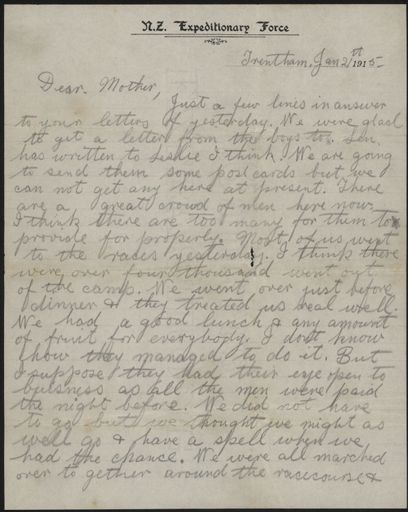 N.Z. Expeditionary Force
Trentham, Jan 2/th 1915
Dear Mother,
Just a few lines in answer
to your letters of yesterday. We were glad
to get a letter from the boys to. Len.
has written to Leslie I think. We are going
to send them some post cards but we
can not get any here at present. There
are a great crowd of men here now.
I think there are too many for them to
provide for properly. Most of us went
to the races yesterday. I think there
were over four thousand went out
of the camp. We went over just before
dinner & they treated us real well.
We had a good lunch & any amount
of fruit for everybody. I dont know
how they managed to do it. But
I suppose they had their eye open to
buisness as all the men were paid
the night before. We did not have
to go but we thought we might as
well go & have a spell when we
had the chance. We were all marched
over to gether around the racecourse &